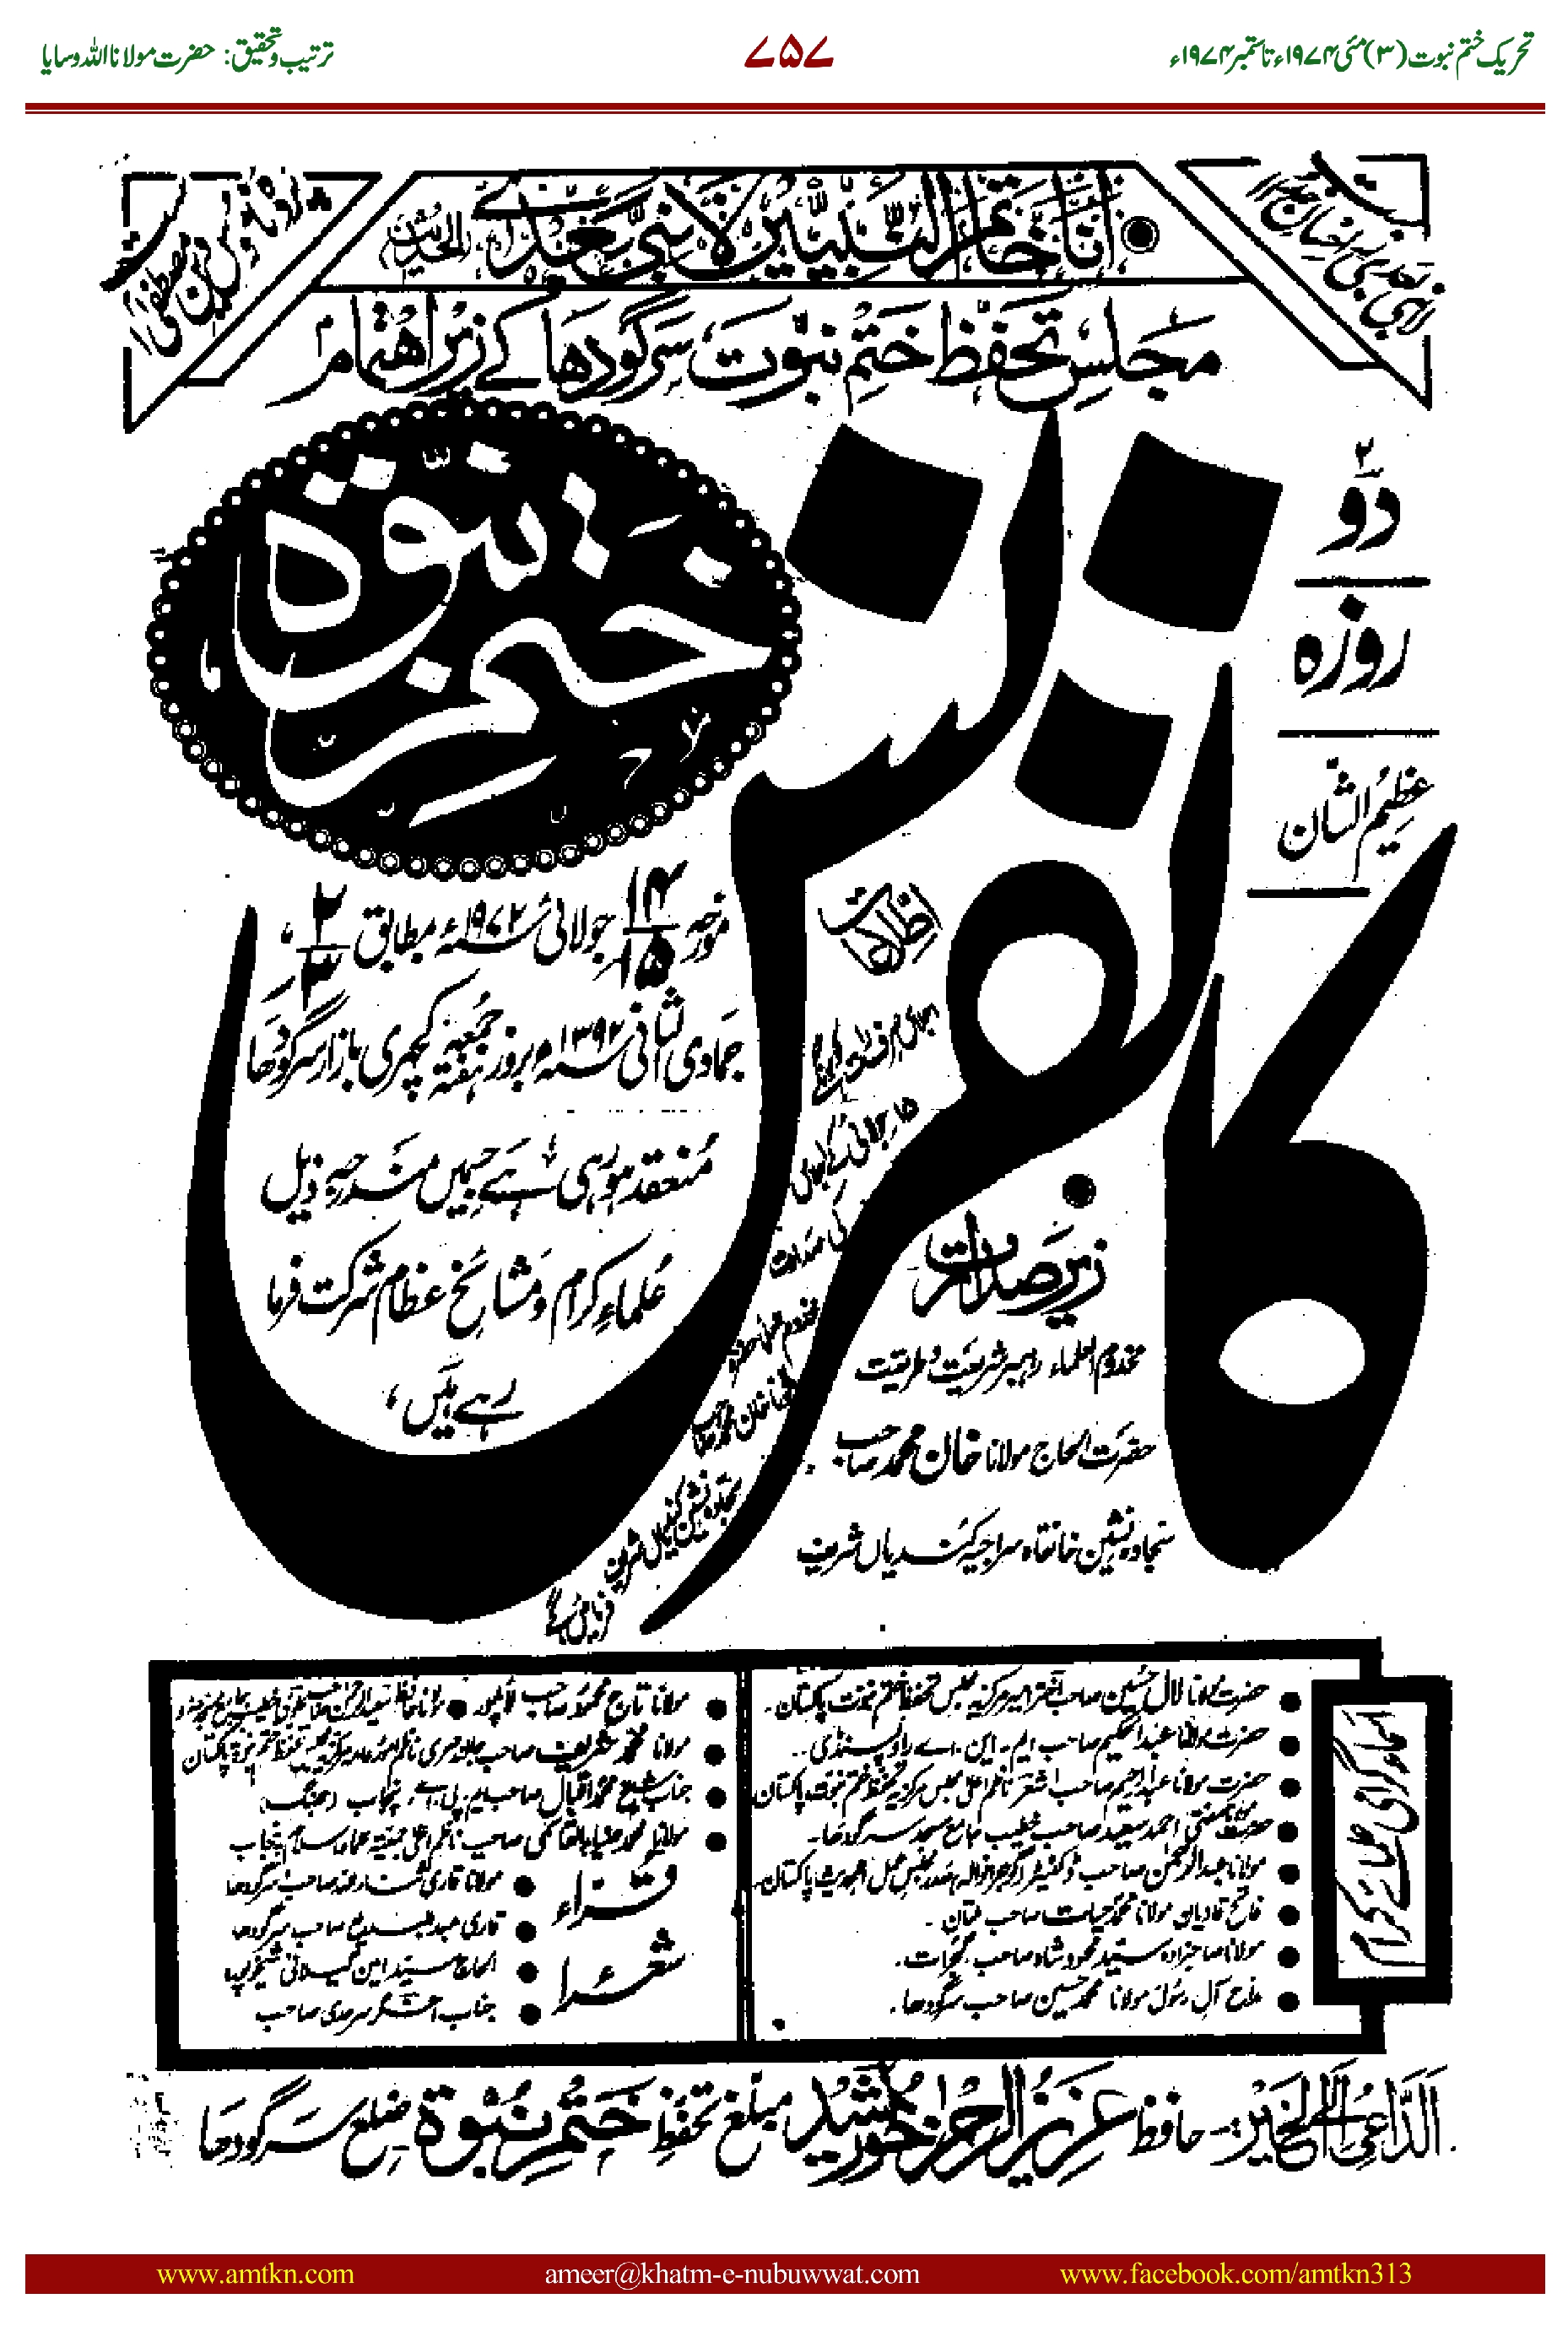 تحریک ختم نبوت (۳) مئی ۱۹۷۴ء تا ستمبر ۱۹۷۴ء
۷۵۷
ترتیب و تحقیق: حضرت مولانا اللہ وسایا
انا خاتم النبیین لا نبی بعدی الحدیث
مجلس تحفظ ختم نبوت سرگودھا کے زیر اہتمام
۲
دو
روزہ
عظیم الشان
ختم نبوۃ
کانفرنس
مورخہ ۱۴/۱۵ جولائی ۱۹۷۲ء مطابق ۲/۳
جمادی الثانی ۱۳۹۲ھ بروز جمعہ ہفتہ کچہری بازار سرگودھا
منعقد ہو رہی ہے جسمیں مندرجہ ذیل
علماء کرام و مشائخ عظام شرکت فرما
رہے ہیں،
کی صدارت
خان محمد صاحب
سجادہ نشین کندیاں شریف
فرمائیں گے
زیر صدارت
مخدوم العلماء رہبر شریعت و طریقت
حضرت الحاج مولانا خان محمد صاحب
سجادہ نشین خانقاہ سراجیہ کندیاں شریف
اسماء گرامی علمائے کرام
حضرت مولانا لال حسین صاحب اختر امیر مرکزیہ مجلس تحفظ ختم نبوت پاکستان۔
حضرت مولانا عبدالحکیم صاحب ایم۔ این۔ اے راولپنڈی۔
حضرت مولانا عبدالرحیم صاحب اشعر ناظم اعلیٰ مجلس مرکزیہ تحفظ ختم نبوت پاکستان
حضرت مولانا مفتی احمد سعید صاحب خطیب جامع مسجد سرگودھا۔
مولانا عبدالرحمٰن صاحب
فاتح قادیان مولانا محمد حیات صاحب ملتان۔
مولانا صاحبزادہ سید محمود شاہ صاحب گجرات۔
مداح آل رسول مولانا محمد حسین صاحب سرگودھا۔
مولانا تاج محمود صاحب لائلپور
مولانا محمد شریف صاحب جالندھری
جناب شیخ محمد اقبال صاحب ایم پی اے پنجاب (جھنگ)
مولانا محمد ضیاء القاسمی صاحب ناظم اعلیٰ جمعیۃ علماء اسلام پنجاب
قراء
مولانا قاری صاحب سرگودھا
قاری عبدالسمیع صاحب سرگودھا
شعراء
الحاج سید امین گیلانی شیخوپورہ
جناب سرحدی صاحب
الداعی الی الخیر:۔ حافظ عزیز الرحمٰن خورشید مبلغ تحفظ ختم نبوۃ ضلع سرگودھا
www.amtkn.com
ameer@khatm-e-nubuwwat.com
www.facebook.com/amtkn313